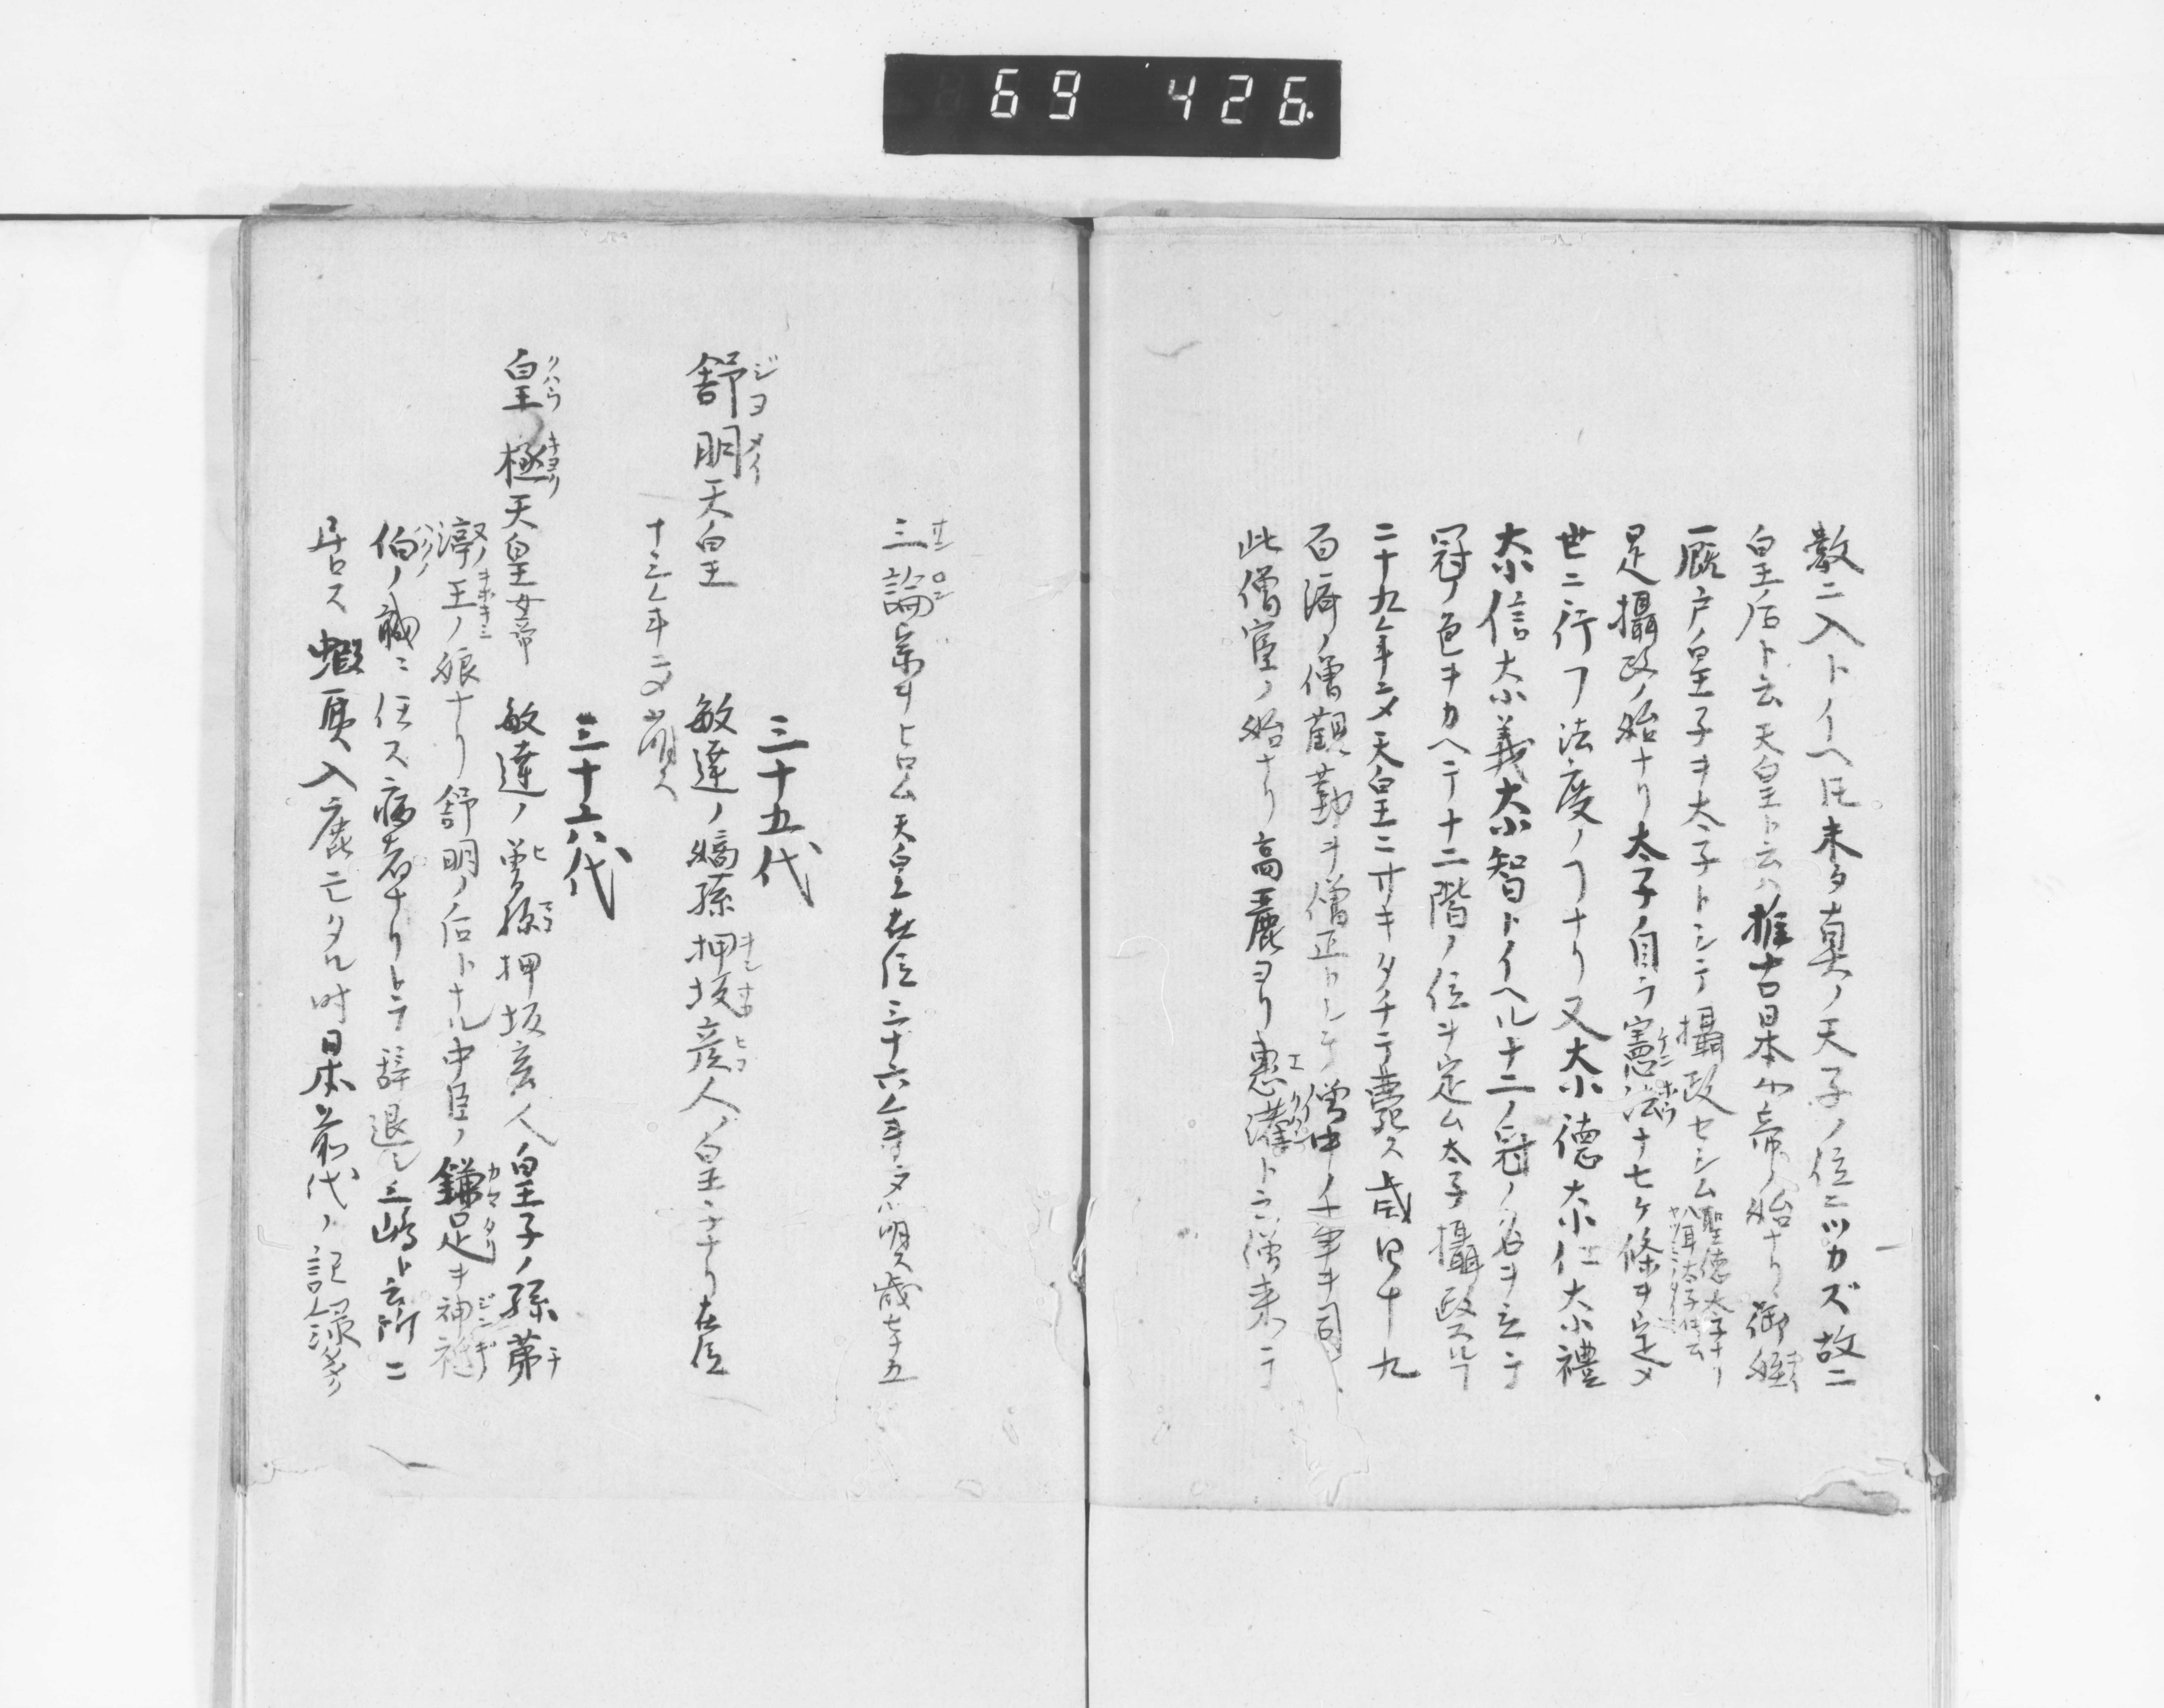 69 426
数ニ入トイヘ𪜈未タ真ノ天子ノ位ニツカズ故ニ
皇后ト云天皇ト云ハ推古日本女帝ノ始ナリ御姪
厩戸ノ皇子ヲ太子トシテ攝政セシム聖徳太子ナリ八耳太子𪜈云
是攝政ノ始ナリ太子ノ自ラ憲法十七ケ條ヲ定メ
世ニ行フ法度ノヿナリ又大小徳大小仁大小禮
大小信大小義大小智トイヘル十二ノ冠ノ名ヲ立テ
冠ノ色ヲカヘテ十二階ノ位ヲ定ム太子攝政スルヿ
二十九年ニメ天皇ニサキタチテ薨ス歳四十九
百済ノ僧觀勒ヲ僧正トシテ僧中ノ事ヲ司
此僧官ノ始ナリ高麗ヨリ惠灌ト云僧来テ
三論宗ヲヒロム天皇在位三十六年ニメ崩ス歳七十五
三十五代
舒明天皇 敏達ノ嫡孫押坂彦人ノ皇子ナリ在位
十三年ニメ崩ス
三十六代
皇極天皇女帝 敏達ノ曽孫押坂彦人皇子ノ孫茅
渟王ノ娘ナリ舒明ノ后トナル中臣ノ鎌足ヲ神祇
伯ノ職ニ任ス病者ナリトテ辞退シ三嶋ト云所ニ
居ス蝦夷入鹿亡タル時日本前代ノ記録等